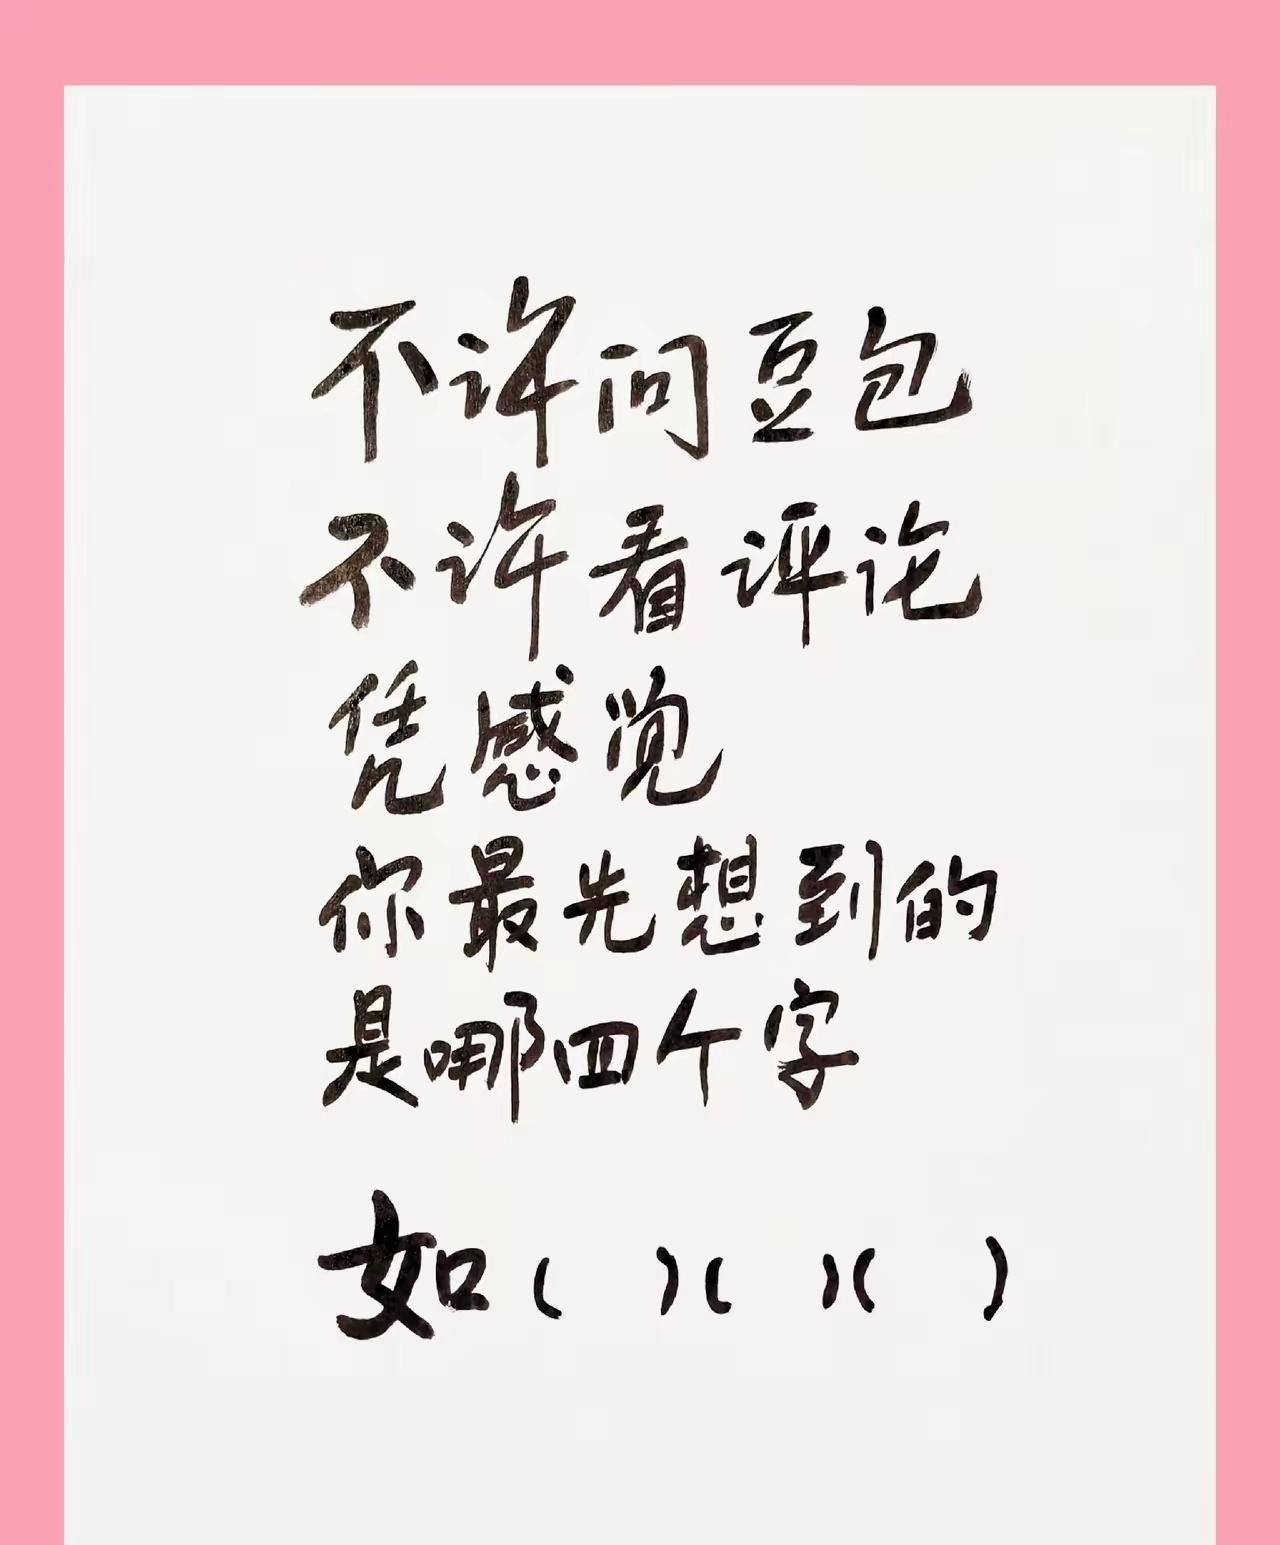 不许问豆包
不许看评论
凭感觉
你最先想到的
是哪四个字
如( )( )( )